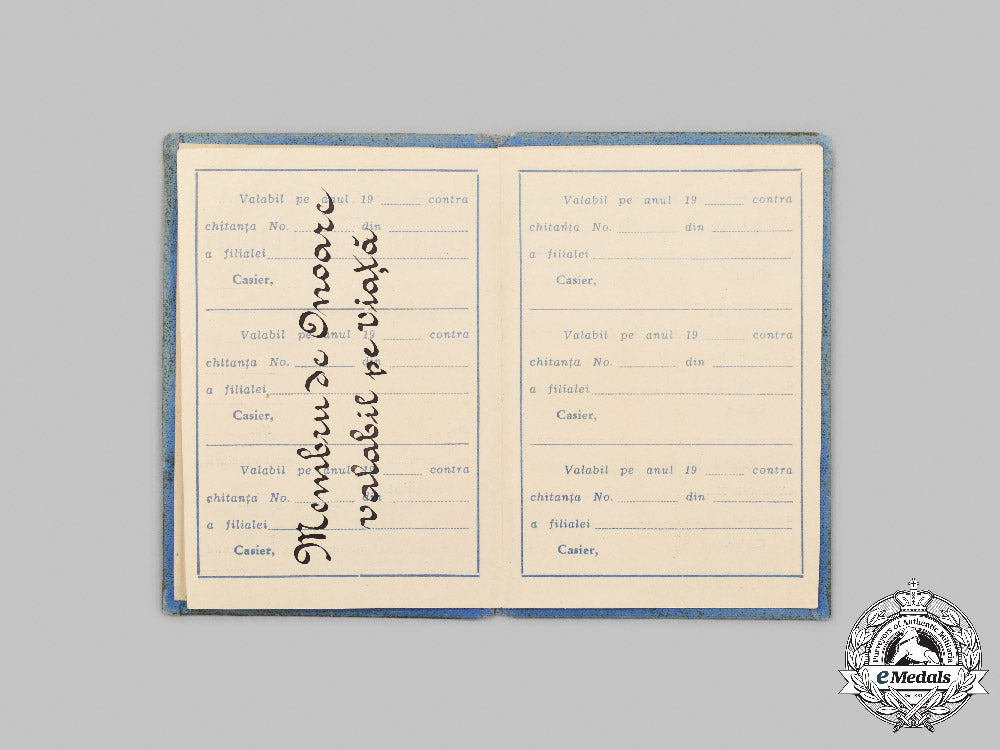 Valabil pe anul 19 ______ contra
chitanța No. ________ din ____________
a filialei ______________________
Casier,
Valabil pe anul 19 ______ contra
chitanța No. ________ din ____________
a filialei ______________________
Casier,
Valabil pe anul 19 ______ contra
chitanța No. ________ din ____________
a filialei ______________________
Casier,
Membru de Onoare
valabil pe viață
Valabil pe anul 19 ______ contra
chitanța No. ________ din ____________
a filialei ______________________
Casier,
Valabil pe anul 19 ______ contra
chitanța No. ________ din ____________
a filialei ______________________
Casier,
Valabil pe anul 19 ______ contra
chitanța No. ________ din ____________
a filialei ______________________
Casier,
Purveyors of Authentic Militaria
eMedals